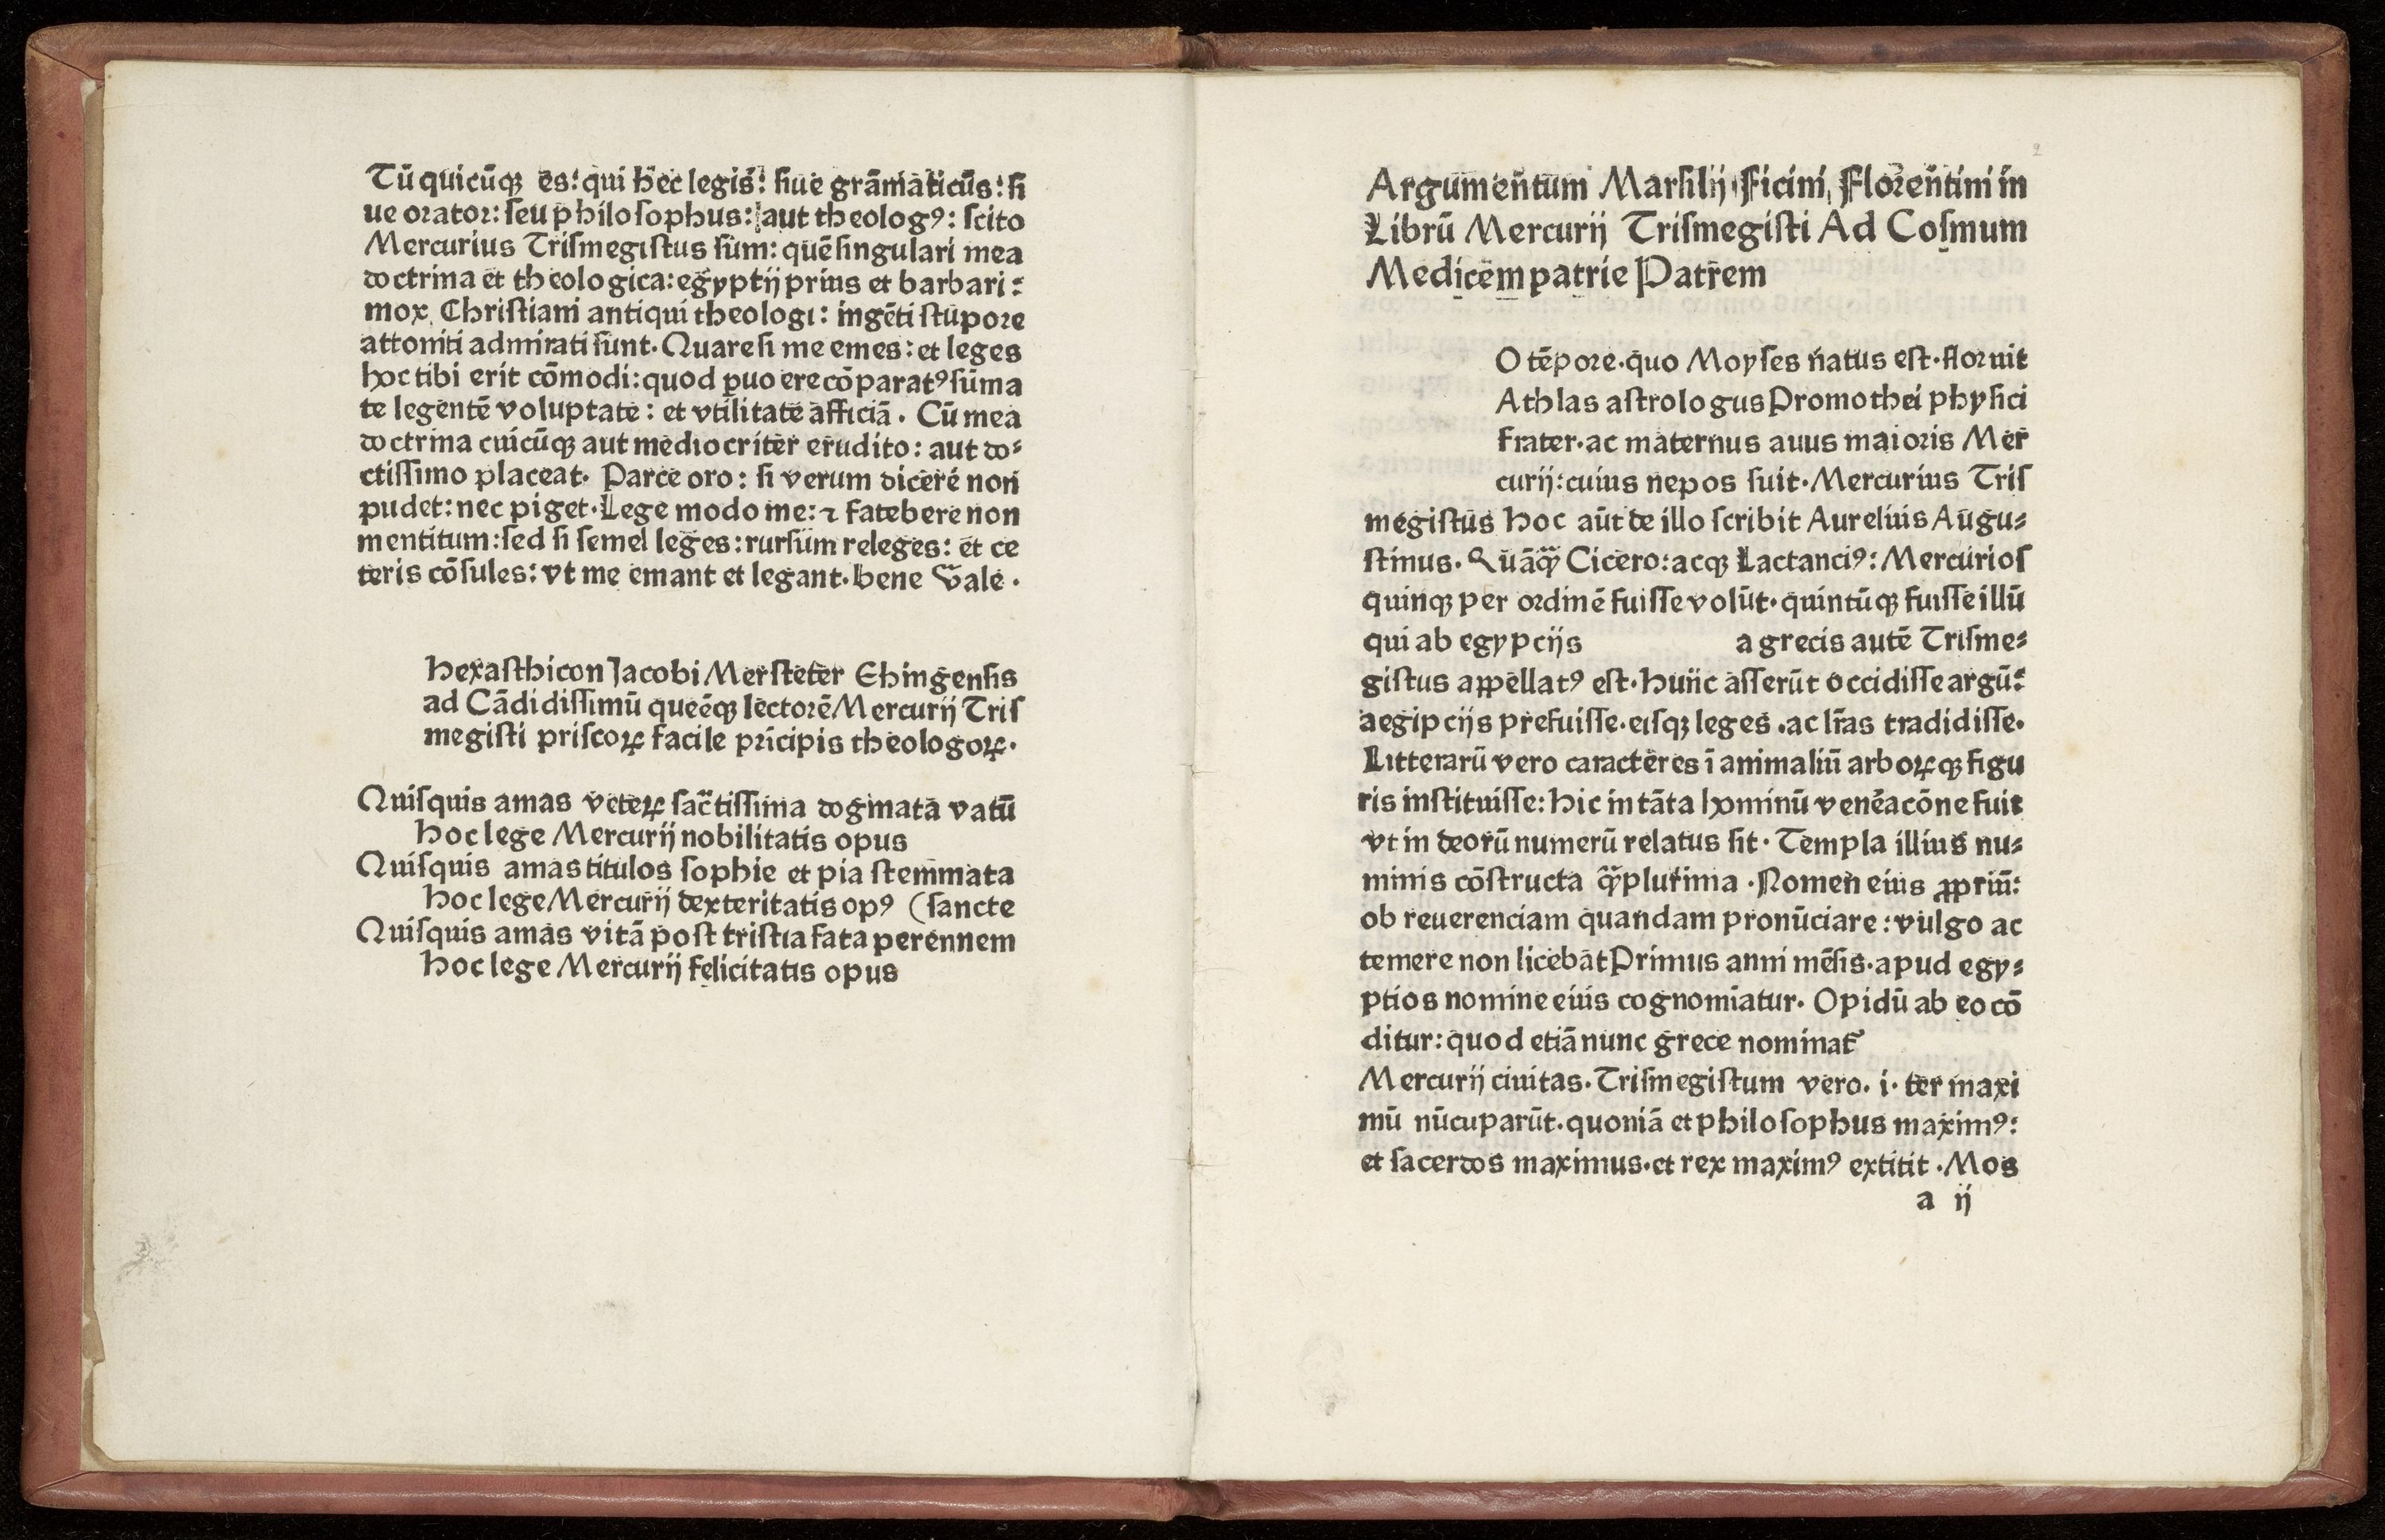 Tū quicūqꝫ es: qui hec legis: siue grāmaticus: si
ue orator: seu philosophus: aut theologꝰ: scito
Mercurius Trismegistus sum: quē singulari mea
doctrina et theologica: egyptij prius et barbari:
mox Christiani antiqui theologi: ingēti stupore
attoniti admirati sunt. Quare si me emes: et leges
hoc tibi erit cōmodi: quod ꝑuo ere cōparatꝰ sūma
te legentē voluptate: et vtilitate afficiā. Cū mea
doctrina cuicūqꝫ aut mediocriter erudito: aut do⸗
ctissimo placeat. Parce oro: si verum dicere non
pudet: nec piget. Lege modo me: ⁊ fatebere non
mentitum: sed si semel leges: rursum releges: et ce
teris cōsules: vt me emant et legant. bene Vale.
Hexasthicon Jacobi Mersteter Ehingensis
ad Cādidissimū queēqꝫ lectorē Mercurij Tris
megisti priscoꝝ facile prīcipis theologoꝝ.
Quisquis amas veteꝝ sactissima dogmata vatū
Hoc lege Mercurij nobilitatis opus
Quisquis amas titulos sophie et pia stemmata
Hoc lege Mercurij dexteritatis opꝰ (sancte
Quisquis amas vitā post tristia fata perennem
Hoc lege Mercurij felicitatis opus
2
Argumentum Marsilij Ficini Florentini in
Librū Mercurij Trismegisti Ad Cosmum
Medicem patrie Patrem
O tēpore. quo Moyses natus est. floruit
Athlas astrologus Promothei physici
frater. ac maternus auus maioris Mer
curij: cuius nepos fuit. Mercurius Tris
megistus Hoc aūt de illo scribit Aurelius Augu⸗
stinus. Quāqꝫ Cicero: acqꝫ Lactanciꝰ: Mercurios
quinqꝫ per ordinē fuisse volūt. quintūqꝫ fuisse illū
qui ab egypcijs a grecis autē Trisme⸗
gistus appellatꝰ est. hunc asserūt occidisse argū:
aegipcijs prefuisse. eisqꝫ leges. ac lr̄as tradidisse.
Litterarū vero caracteres ī animaliū arboꝝqꝫ figu
ris instituisse: hic in tāta hominū venēacōne fuit
vt in deorū numerū relatus sit. Templa illius nu⸗
minis cōstructa qꝫplurima. Nomen eius ꝓpriū:
ob reuerenciam quandam pronūciare: vulgo ac
temere non licebat Primus anni mēsis. apud egy⸗
ptios nomine eius cognomīatur. Opidū ab eo cō
ditur: quod etiā nunc grece nominat᷑
Mercurij ciuitas. Trismegistum vero. i. ter maxi
mū nūcuparūt. quoniā et philosophus maximꝰ:
et sacerdos maximus. et rex maximꝰ extitit. Mos
a ij